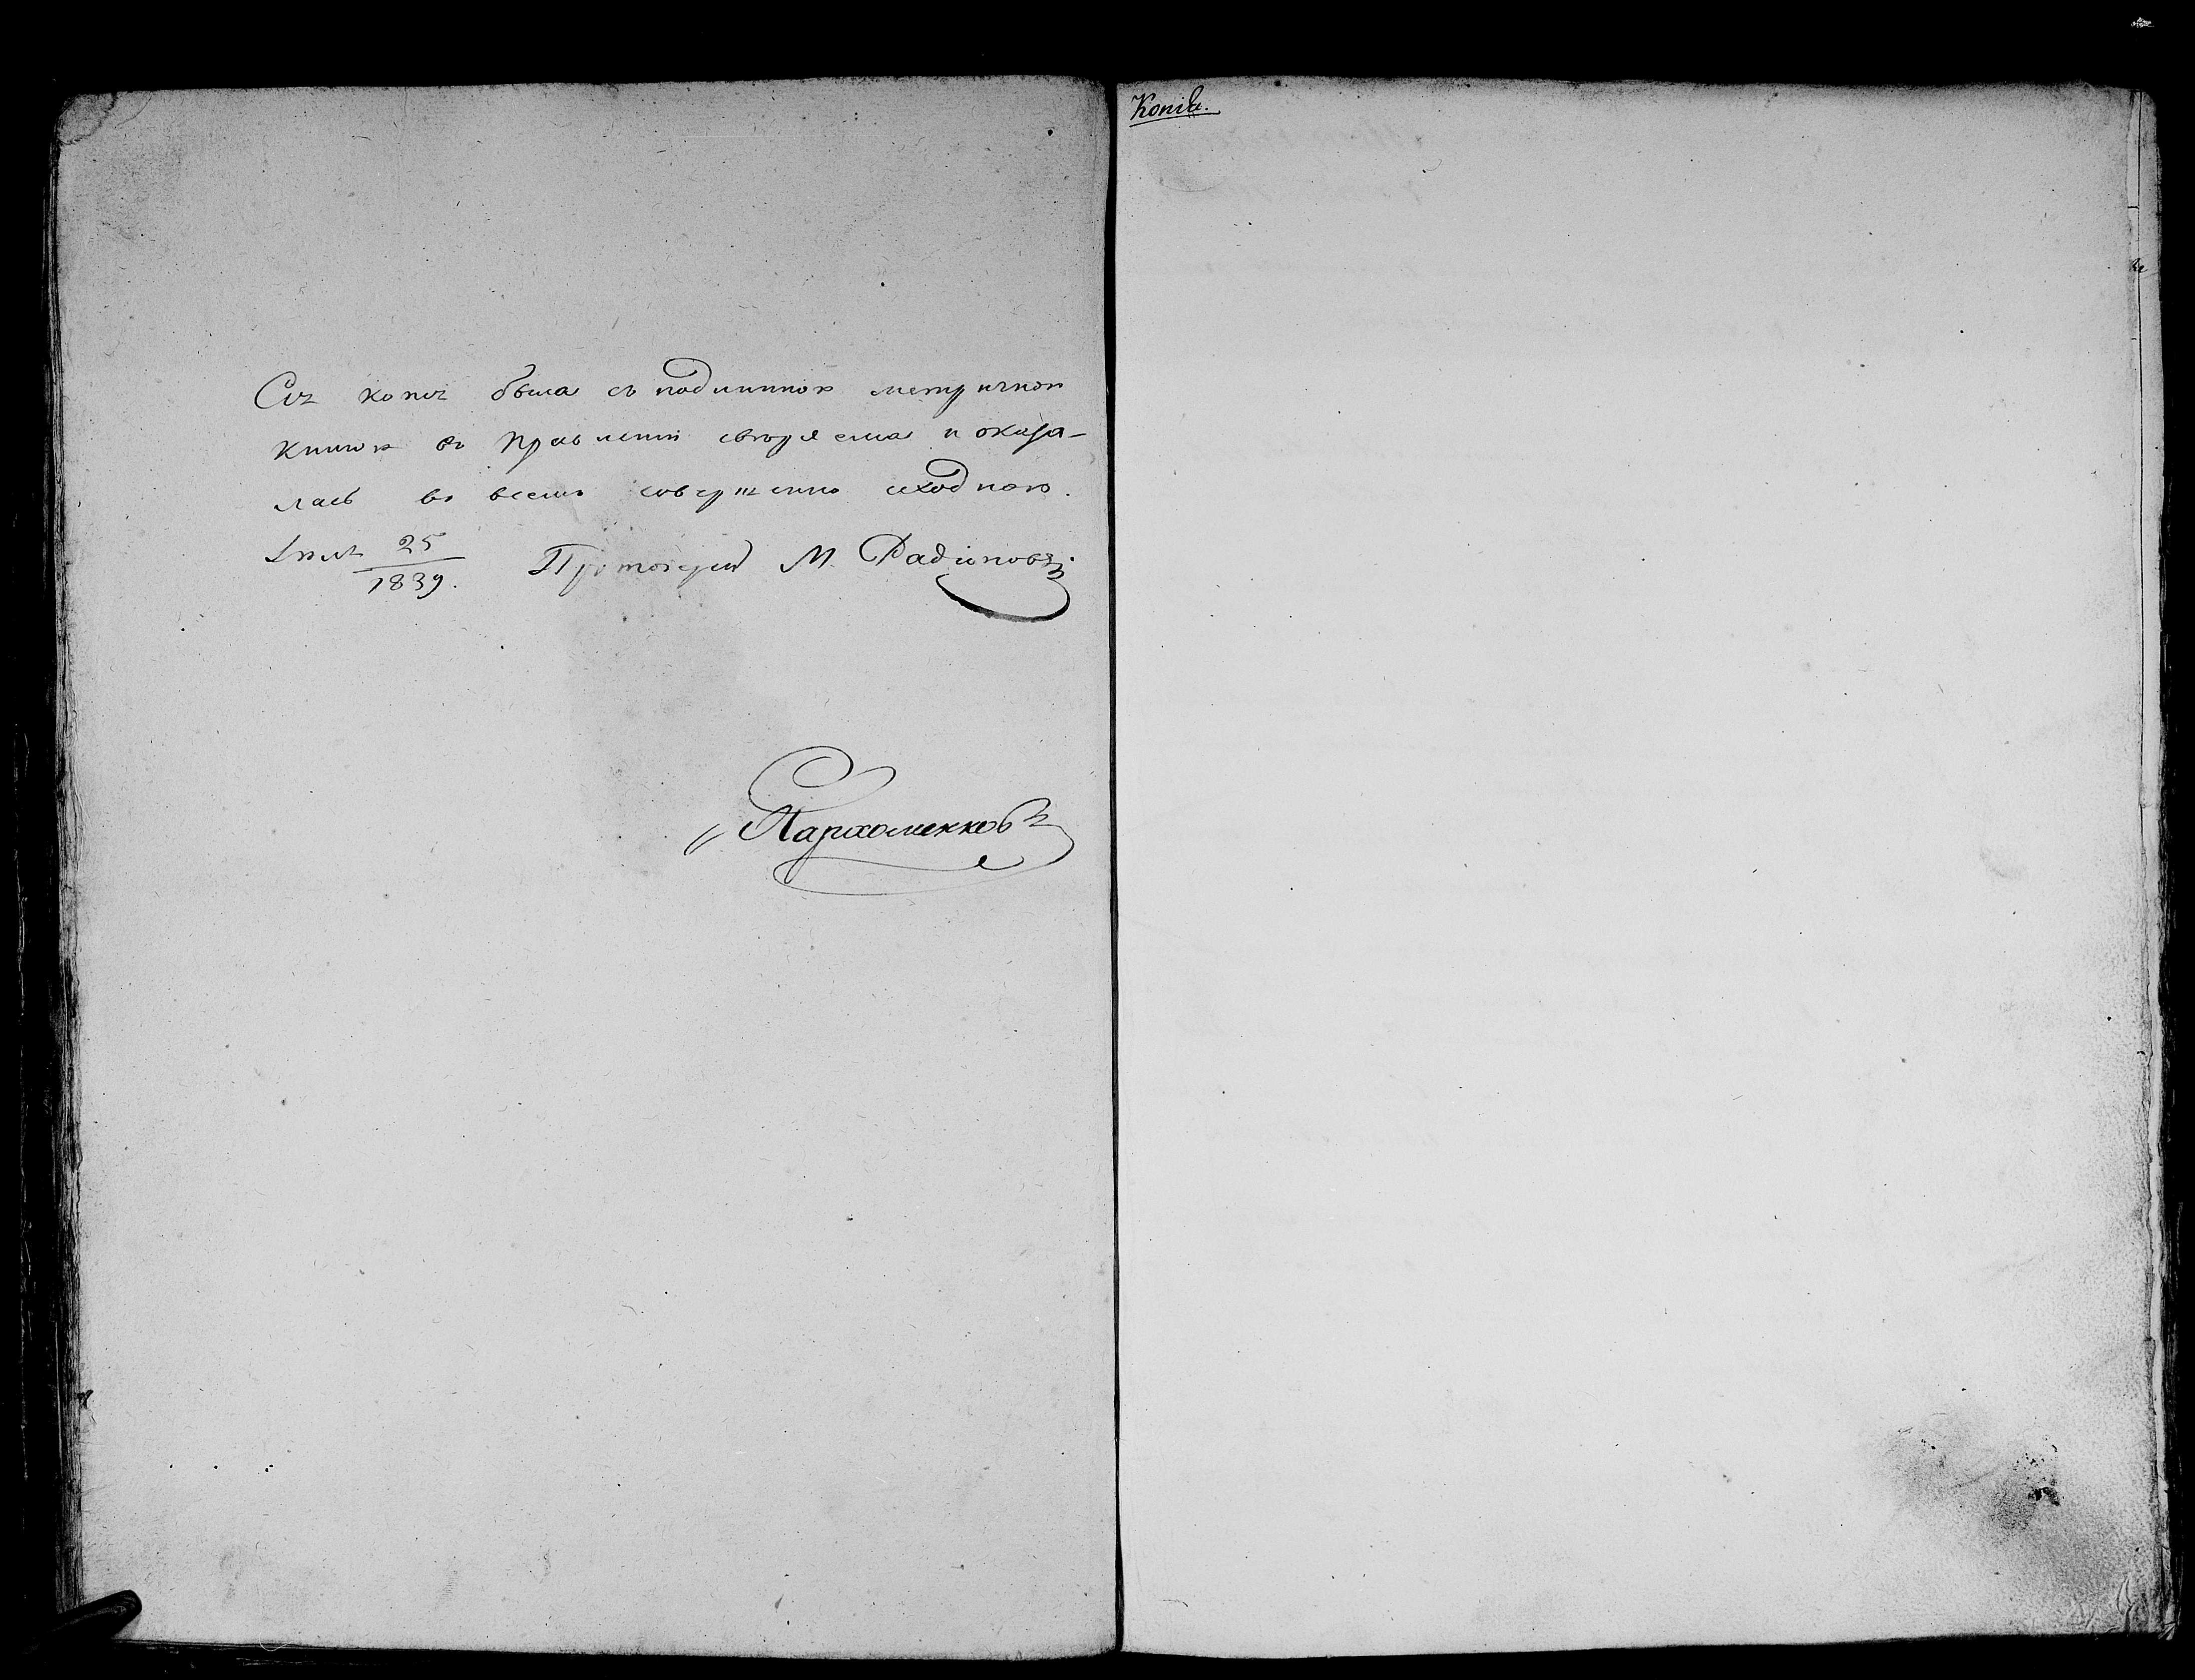 Сія копія была съ подлинною метричною
книгою въ правленіи сводяема и оказа-
лась во всемъ совершенно сходною.
25
1839. Протоіерей М. Радіоновъ.
Пархоменковъ
Копія.